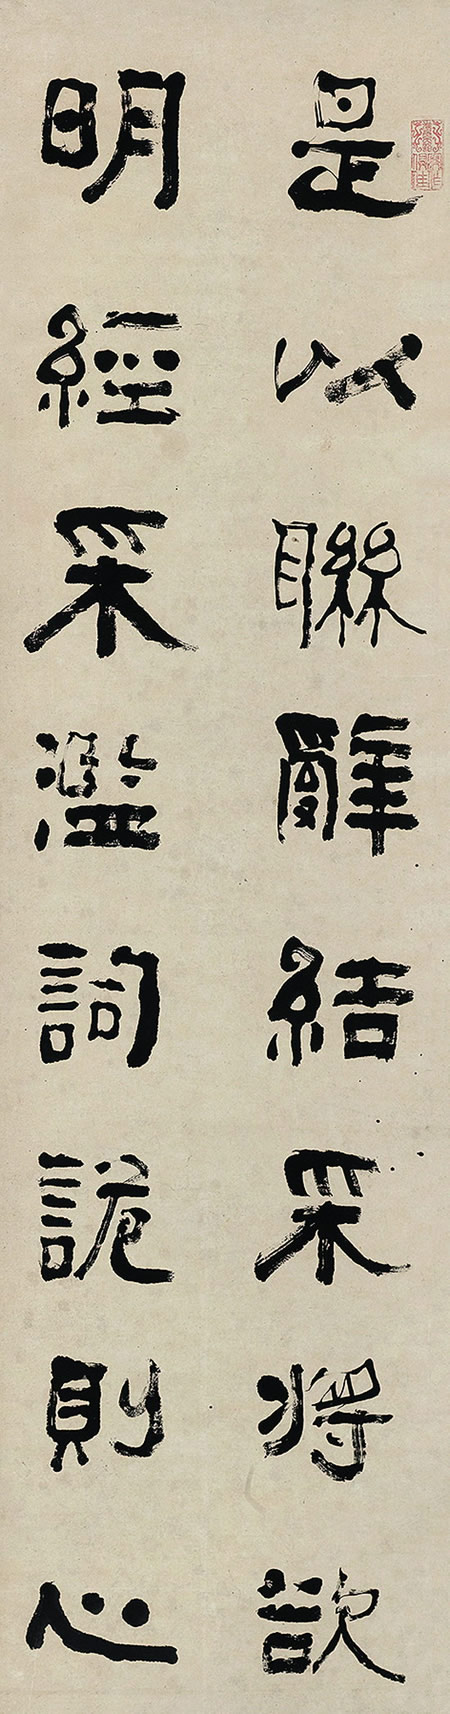 是以聯辭結采將欲
明經采濫詞詭則心